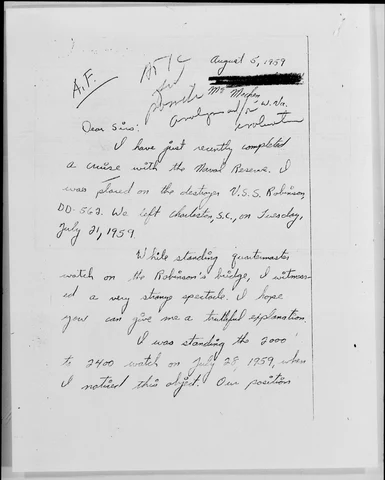 August 5, 1959
A.F.
W. Va.
Dear Sirs:
I have just recently completed
a cruise with the Naval Reserve. I
was placed on the destroyer U.S.S. Robinson,
DD-562. We left Charleston, S.C., on Tuesday,
July 21, 1959.
While standing quartermaster
watch on the Robinson's bridge, I witness-
ed a very strange spectacle. I hope
you can give me a truthful explanation.
I was standing the 2000
to 2400 watch on July 28, 1959, when
I noticed this object. Our position